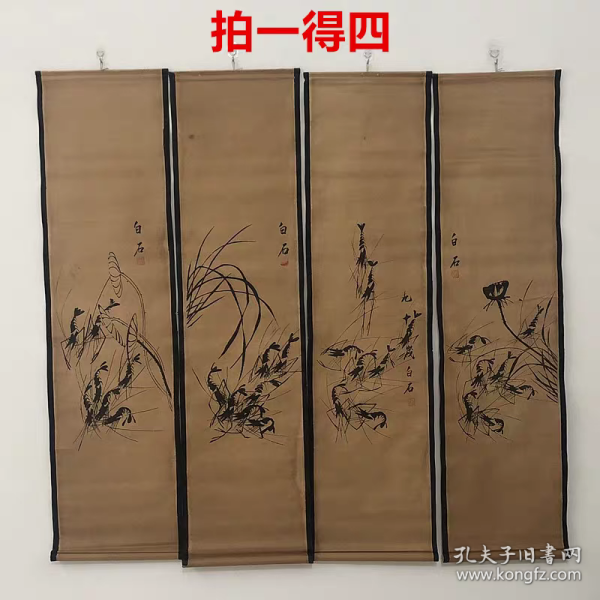 拍一得四
白石
白石
九十八歲白石
白石
孔夫子旧書网
www.kongfz.com